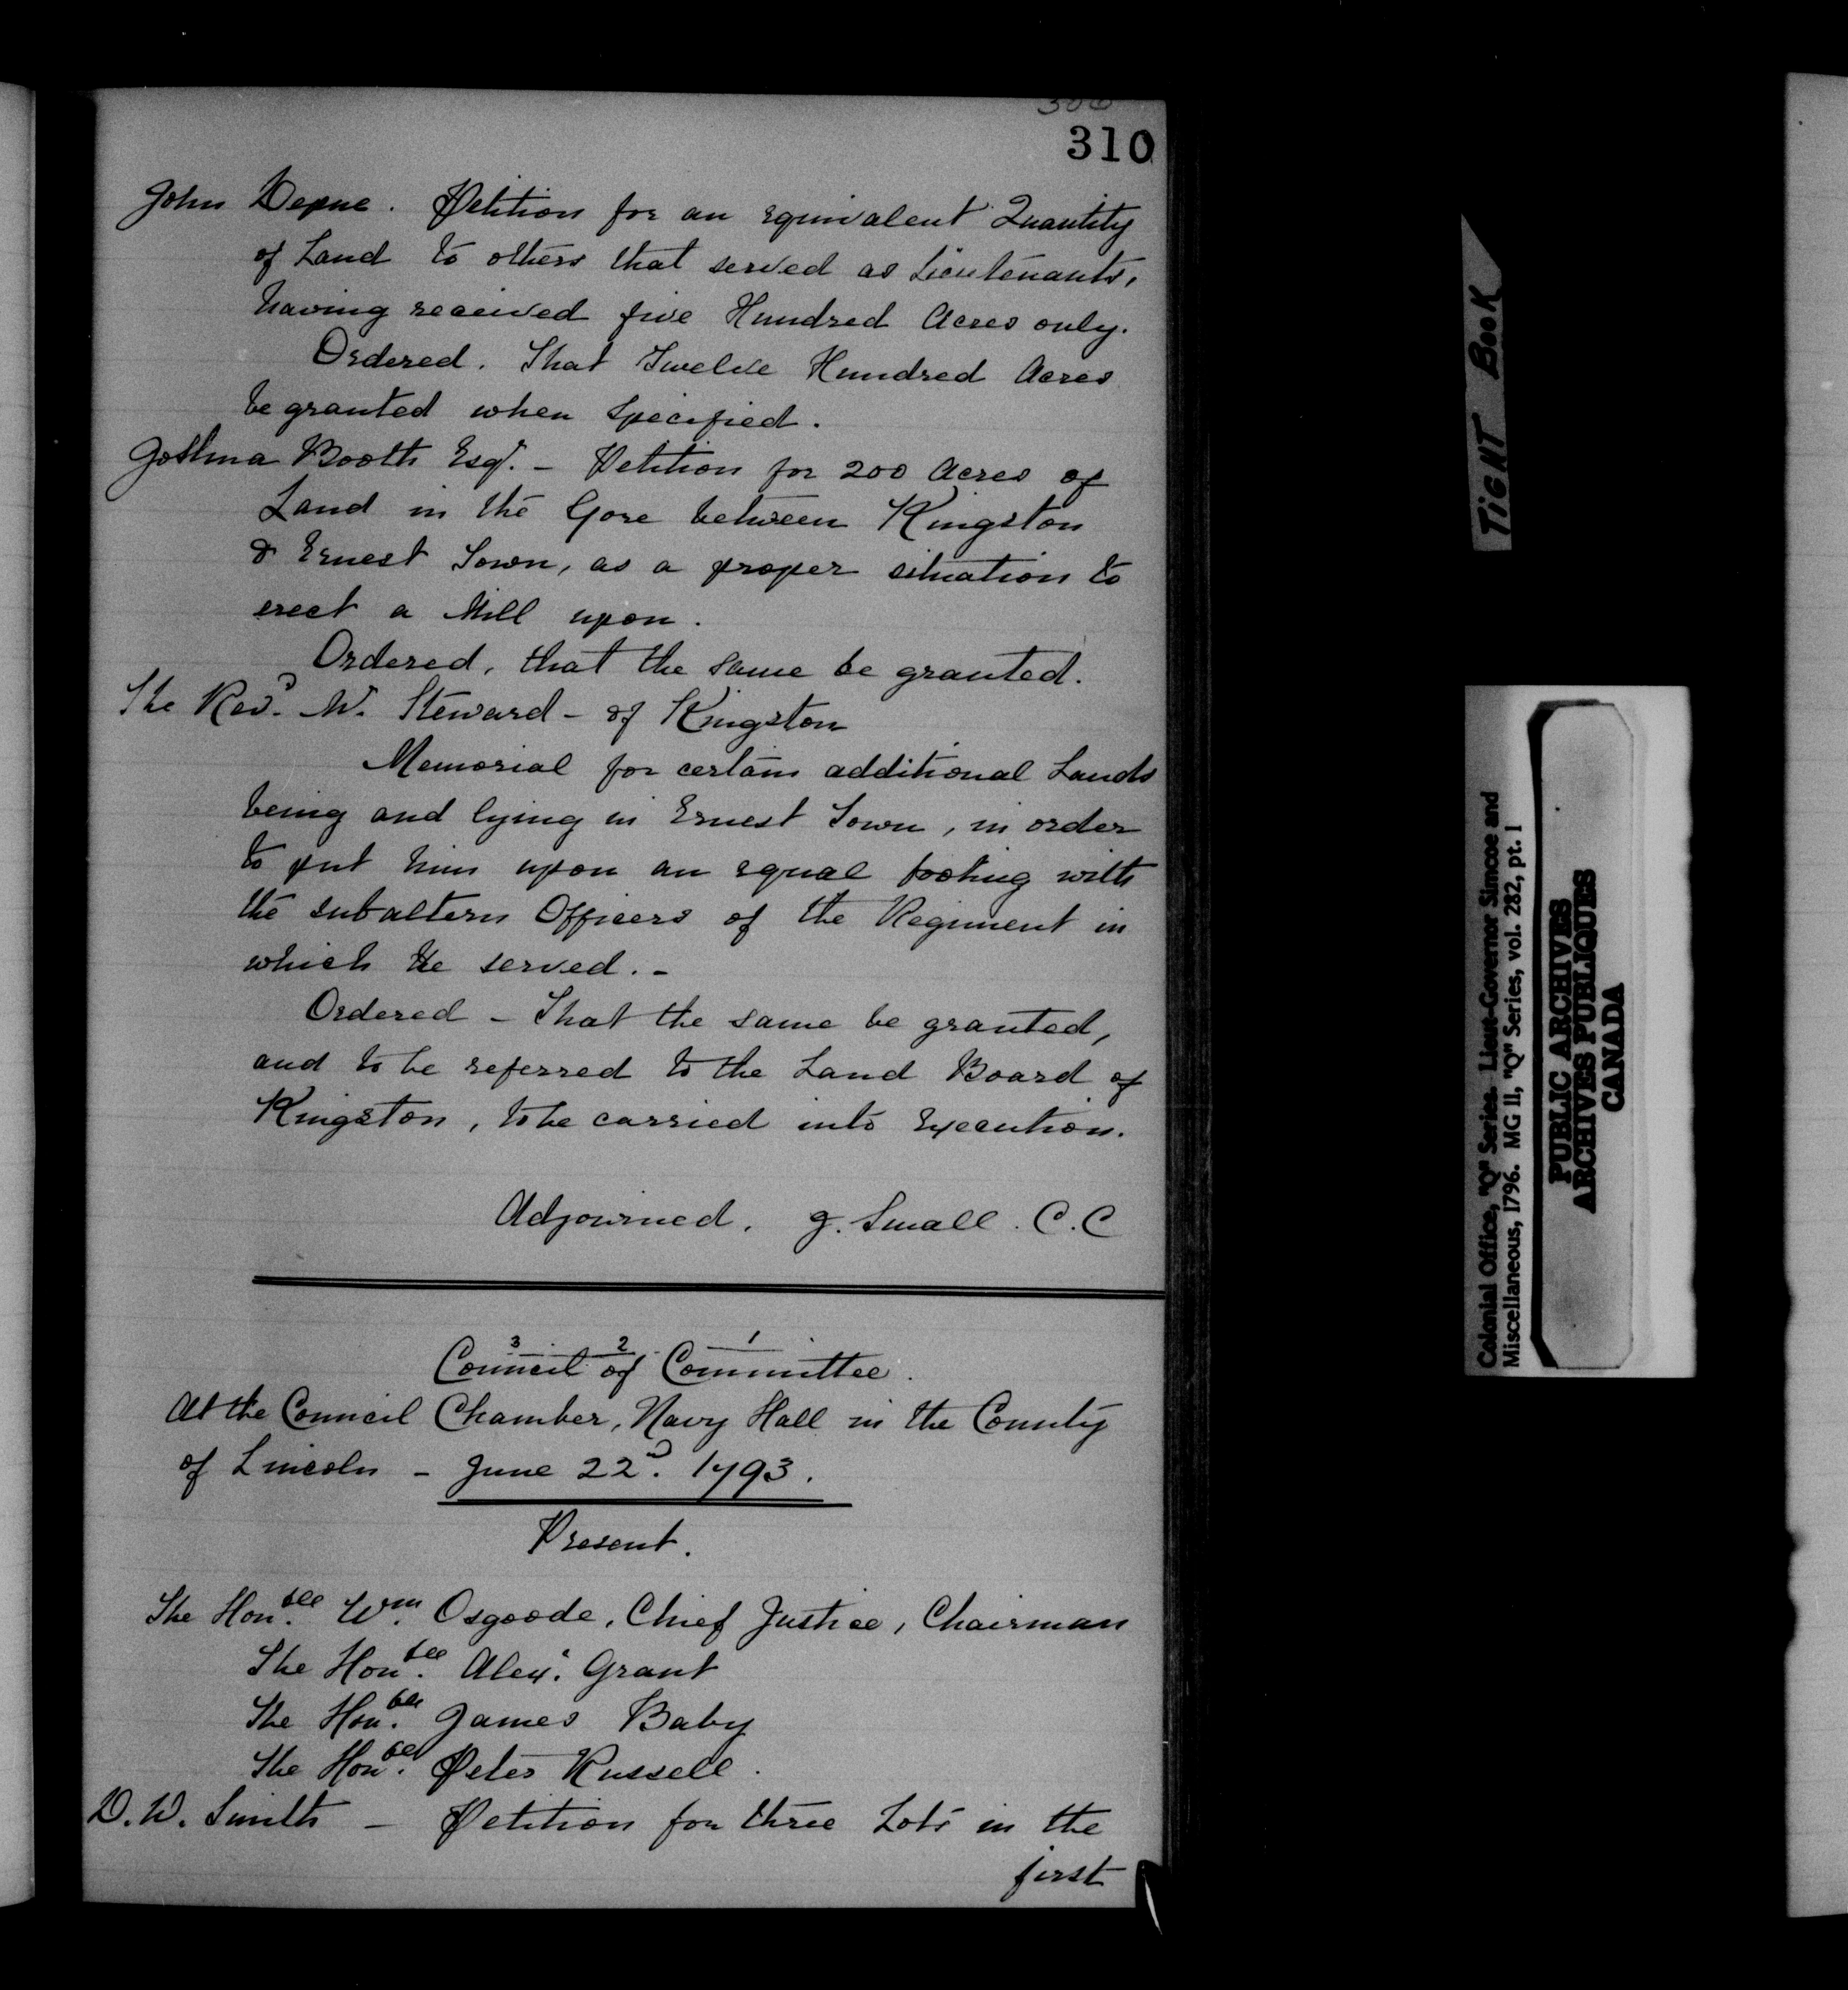 310
John Depue. Petition for an equivalent Quantity
of Land to others that served as Lieutenants,
having received five Hundred Acres only.
Ordered. That Twelve Hundred Acres
be granted when specified.
Joshua Booth Esqr. - Petition for 200 Acres of
Land in the Gore between Kingston
& Ernest Town, as a proper situation to
erect a Mill upon.
Ordered, that the same be granted.
The Revd. Mr. Steward - of Kingston
Memorial for certain additional Lands
being and lying in Ernest Town, in order
to put him upon an equal footing with
the subaltern Officers of the Regiment in
which he served. -
Ordered - That the same be granted,
and to be referred to the Land Board of
Kingston, to be carried into Execution.
Adjourned. J. Small. C.C
3 2 1
Council of Committee.
At the Council Chamber, Navy Hall in the County
of Lincoln - June 22d. 1793.
Present.
The Honble. Wm. Osgoode, Chief Justice, Chairman
The Honble. Alexr. Grant
The Honble. James Baby
The Honble. Peter Russell.
D. W. Smith - Petition for three Lots in the
first
TiGHT BooK
Colonial Office, "Q" Series. Lieut-Governor Simcoe and
Miscellaneous, 1796. MG 11, "Q" Series, vol. 282, pt. 1
PUBLIC ARCHIVES
ARCHIVES PUBLIQUES
CANADA